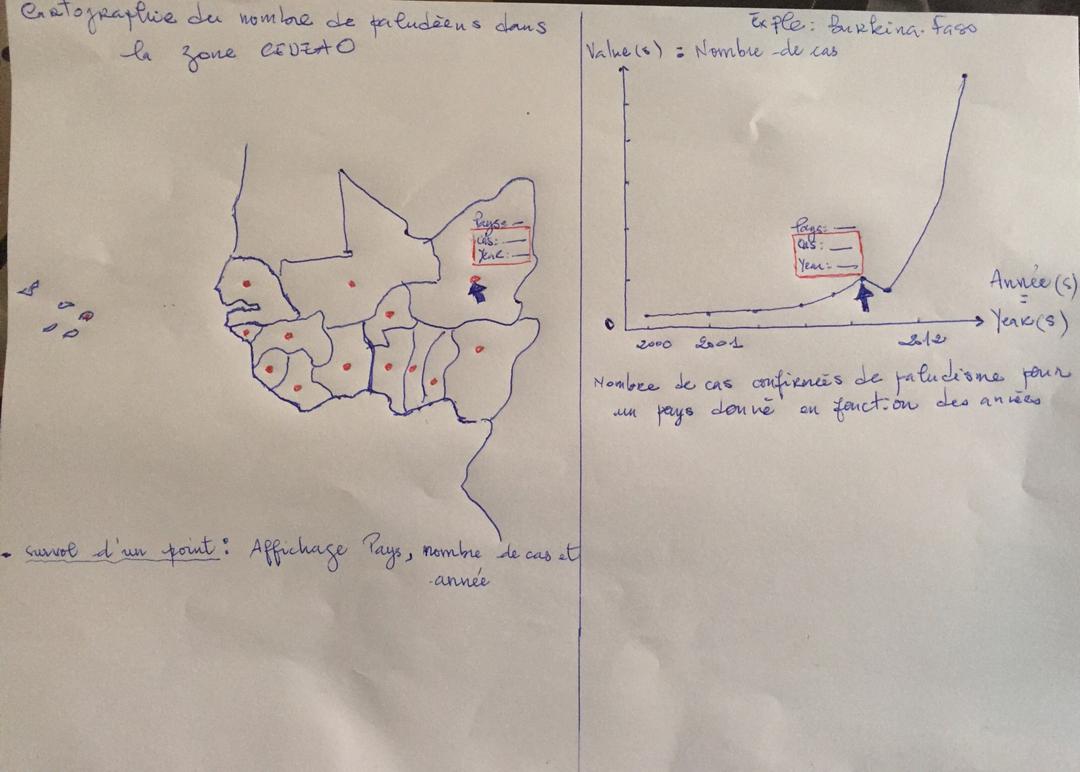 Cartographie du nombre de paludéens dans
la zone CEDEAO
Pays: —
cas: —
Year: —
• survol d'un point : Affichage Pays, nombre de cas et
année
Exple : Burkina-Faso
Value(s) = Nombre de cas
Pays: —
cas: —
Year: —
Année(s)
=
Year(s)
0
2000 2001 2012
Nombre de cas confirmés de paludisme pour
un pays donné en fonction des années